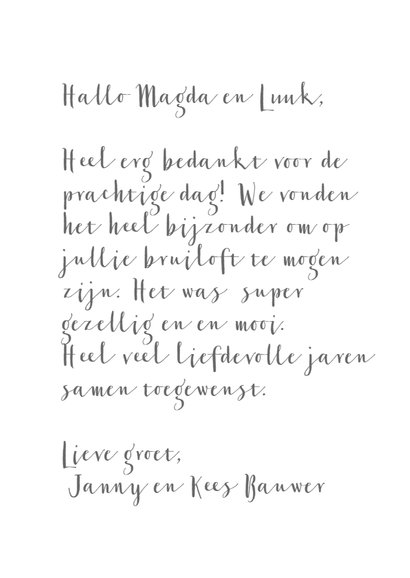 Hallo Magda en Luuk,
Heel erg bedankt voor de
prachtige dag! We vonden
het heel bijzonder om op
jullie bruiloft te mogen
zijn. Het was super
gezellig en en mooi.
Heel veel liefdevolle jaren
samen toegewenst.
Lieve groet,
Janny en Kees Bauwer